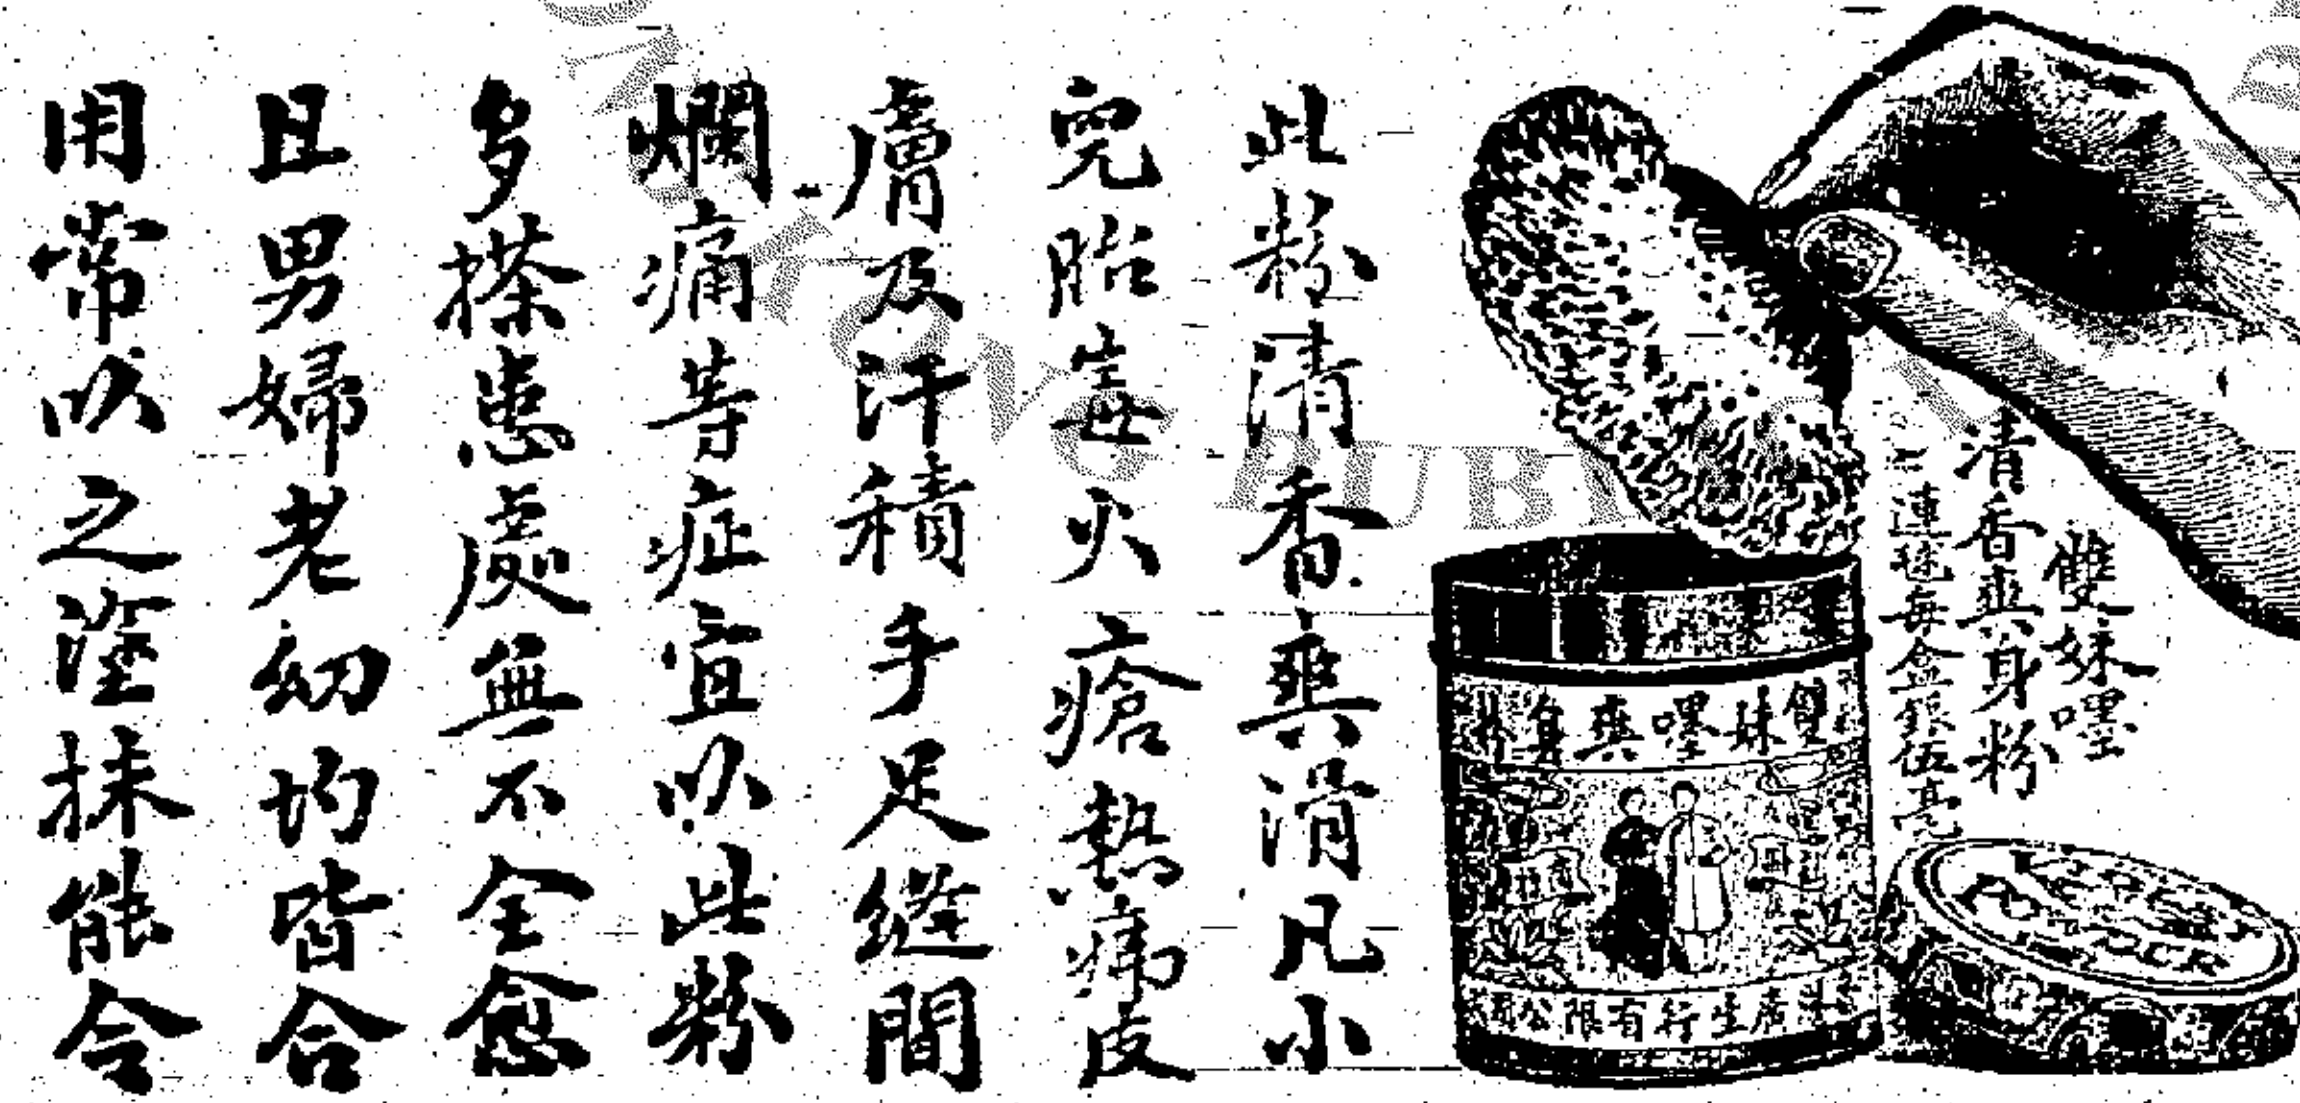 雙妹嘜
清香爽身粉
連毬每盒銀伍毫
雙妹嘜爽身粉
廣生行有限公司
此粉清香爽滑凡小
兒胎毒火瘡熱痱皮
膚及汗積手足縫間
爛痛等症宜以此粉
多搽患處無不全愈
且男婦老幼均皆合
用常以之塗抹能令